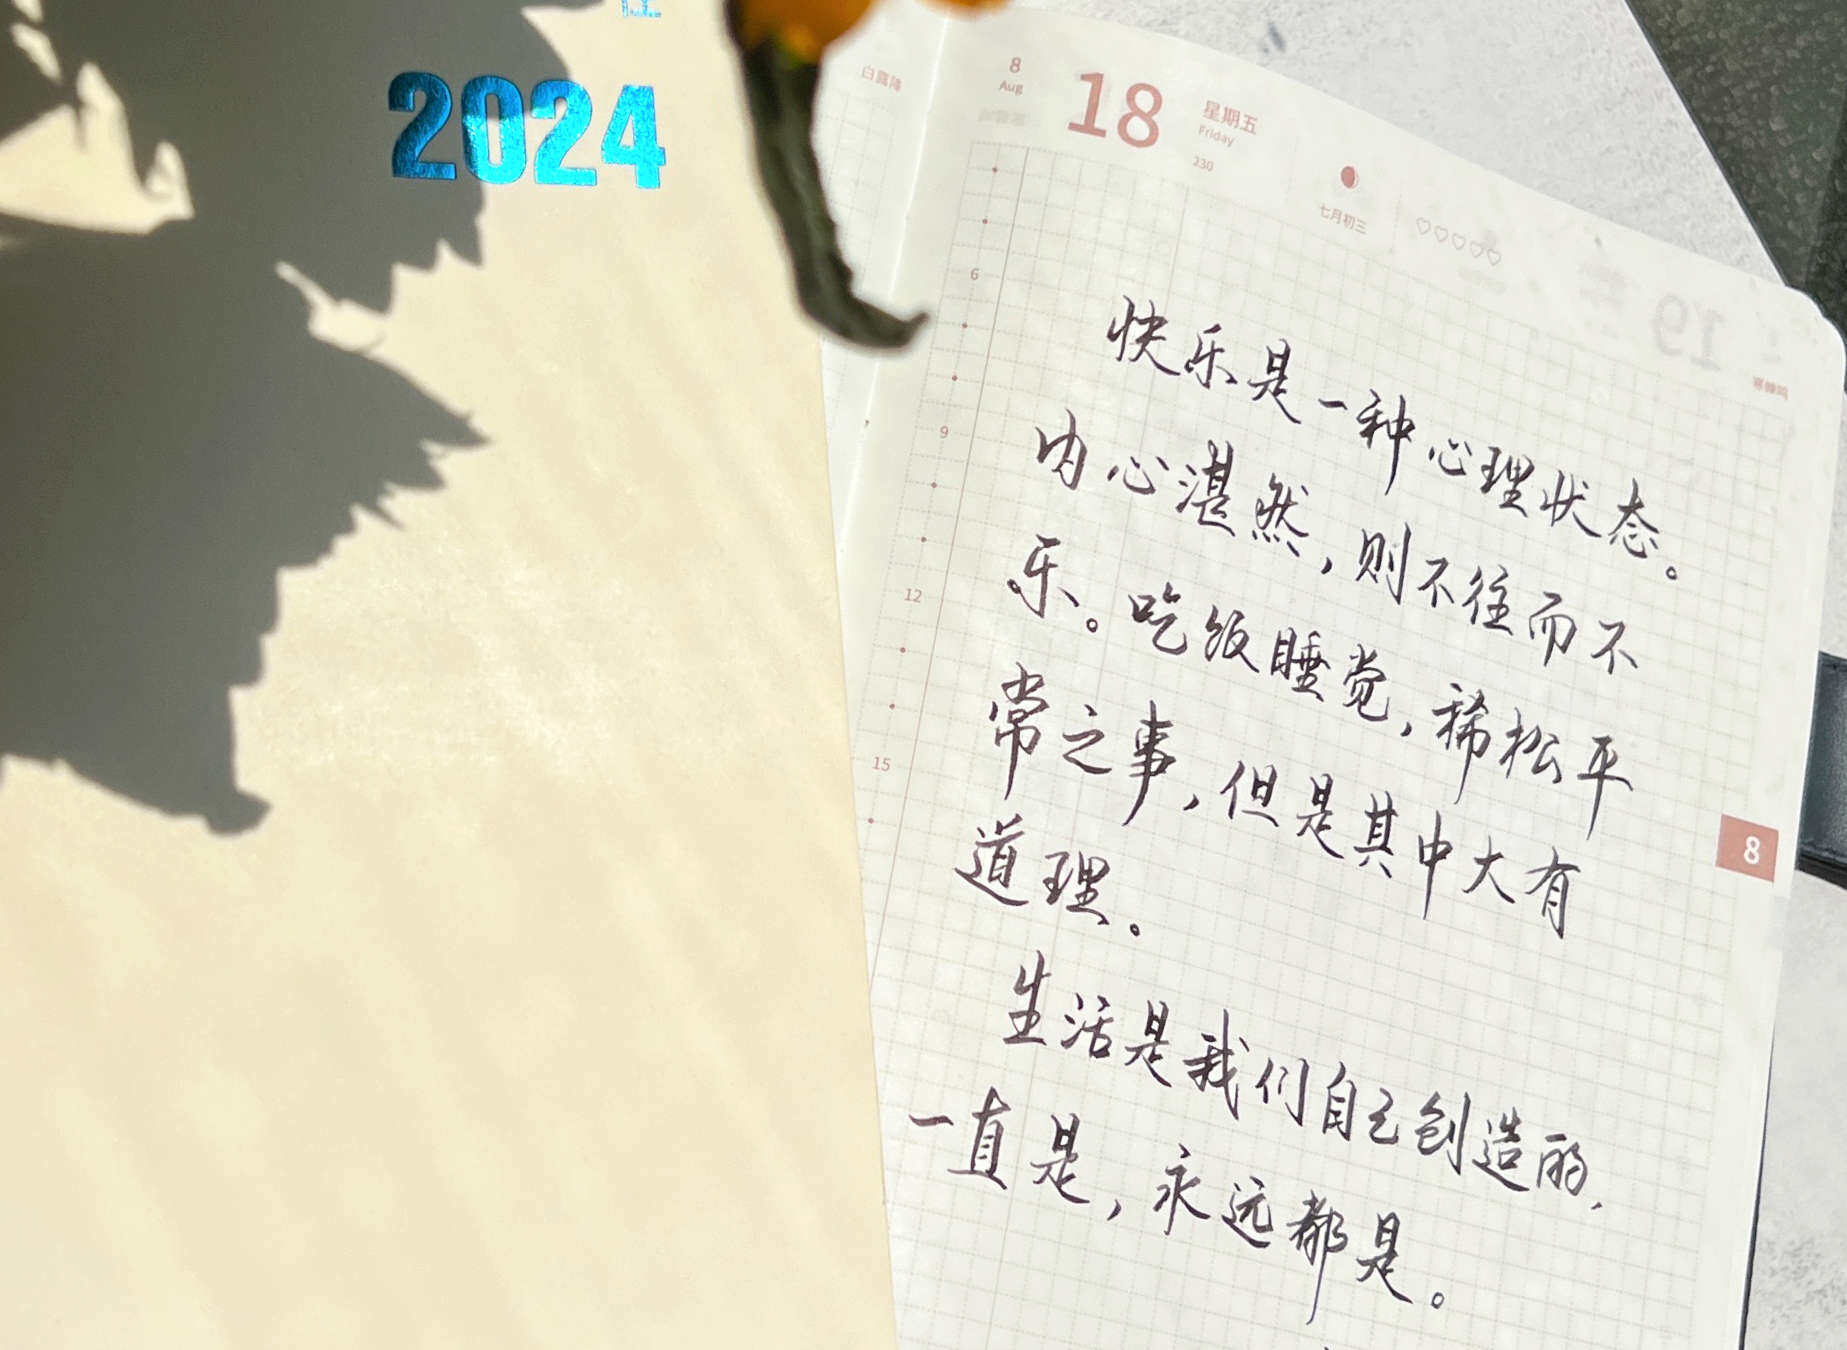 2024
白露降
8
Aug
18
星期五
Friday
230
七月初三
6
9
12
15
快乐是一种心理状态。
内心湛然，则不往而不
乐。吃饭睡觉，稀松平
常之事，但是其中大有
道理。
生活是我们自己创造的，
一直是，永远都是。
8